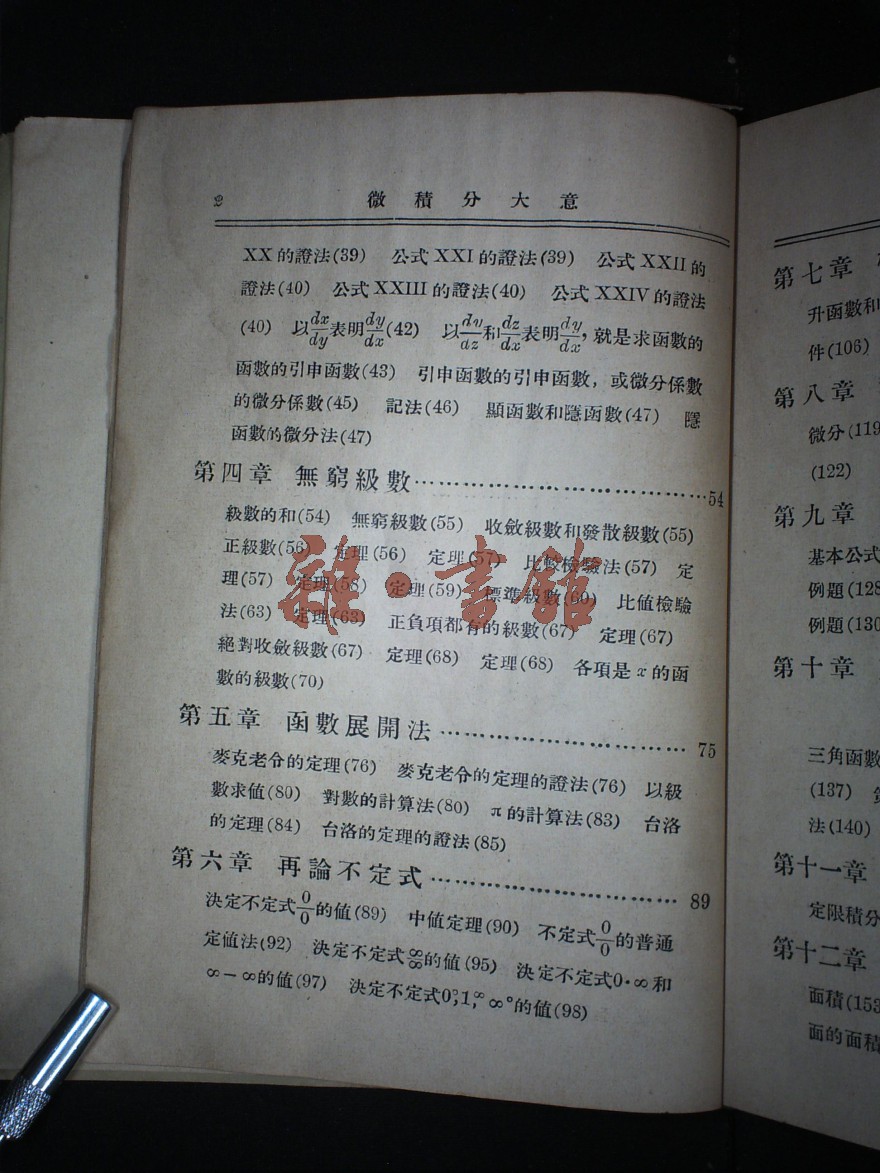 2 微積分大意
XX的證法(39) 公式XXI的證法(39) 公式XXII的
證法(40) 公式XXIII的證法(40) 公式XXIV的證法
(40) 以dx/dy表明dy/dx(42) 以dy/dz和dz/dx表明dy/dx,就是求函數的
函數的引申函數(43) 引申函數的引申函數,或微分係數
的微分係數(45) 記法(46) 顯函數和隱函數(47) 隱
函數的微分法(47)
第四章 無窮級數……………………………54
級數的和(54) 無窮級數(55) 收斂級數和發散級數(55)
正級數(56) 定理(56) 定理(57) 比較檢驗法(57) 定
理(57) 定理(58) 定理(59) 標準級數(60) 比值檢驗
法(63) 定理(63) 正負項都有的級數(67) 定理(67)
絕對收斂級數(67) 定理(68) 定理(68) 各項是x的函
數的級數(70)
第五章 函數展開法……………………………75
麥克老令的定理(76) 麥克老令的定理的證法(76) 以級
數求值(80) 對數的計算法(80) π的計算法(83) 台洛
的定理(84) 台洛的定理的證法(85)
第六章 再論不定式……………………………89
決定不定式0/0的值(89) 中值定理(90) 不定式0/0的普通
定值法(92) 決定不定式∞/∞的値(95) 決定不定式0·∞和
∞-∞的値(97) 決定不定式0⁰,1^∞,∞⁰的値(98)
雜·書館
第七章
升函數和
件(106)
第八章
微分(119
(122)
第九章
基本公式
例題(128
例題(130
第十章
三角函數
(137)
法(140)
第十一章
定限積分
第十二章
面積(153
面的面積